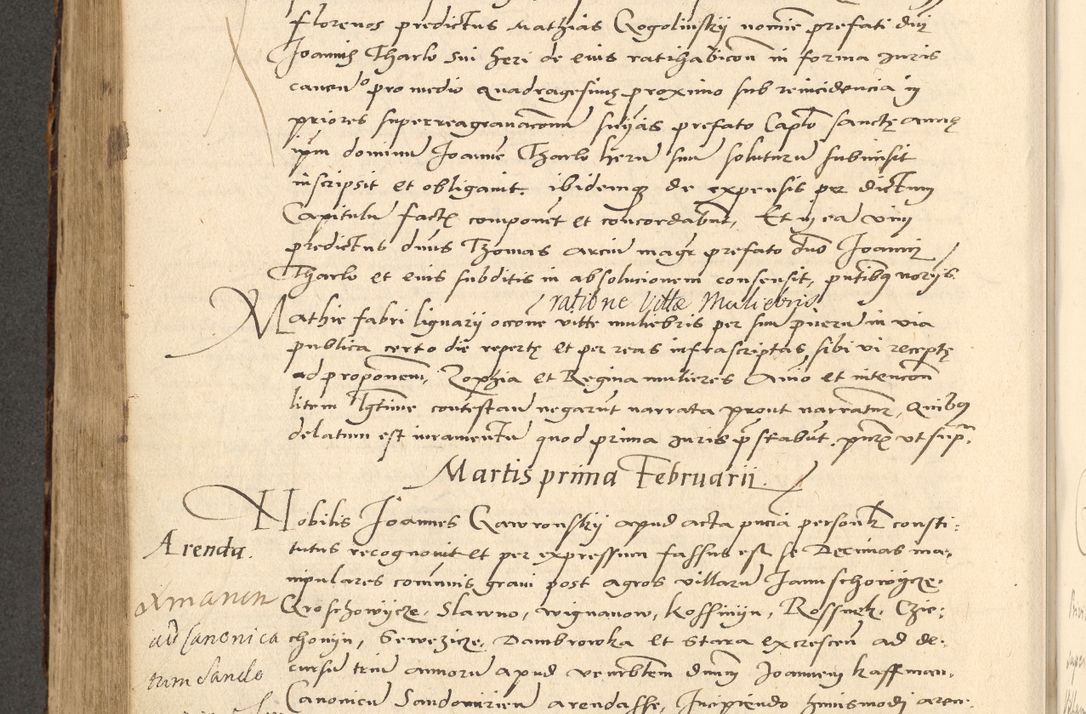 florenos predictus Mathias Gogolinskij nomine prefati dnj
Joannis Tharlo sui heri de eius ratihabicon in forma Juris
canon° pro medio quadragesime proximo sub reincidencia in
priores superreagravaconu suijas prefato Caplo sancte annę
ipm dominum Joanne Tharlo heru suu soluturu submisit
inscripsit et obligavit. ibidemq de expensis per dictum
Capitulu facte componet et concordabut, Et in ea vim
predictus dnus Thomas arciu magr prefato dno Joanni
Tharlo et eius subditis in absolucionem consensit, pntibq
ratione Vittæ Muliebris
Mathie fabri lignarij occone vitte muliebris per suu pueru in via
publica certo die repertę et per reas infrascriptas sibi vi receptę
ad proponem, Zophia et Regina mulieres Anio et intencon
litem lgtime contestan negarut narrata prout narrantur, Quibq
delatum est iuramentu quod prima Juris pstabut. pntz vt sup.
Martis prima Februarii.
Nobilis Joannes Gawronskij apud acta pncia personlr consti:
Arenda.
tutus recognovit et per expressum fassus est se Decimas ma,
nipulares communis gravi post agros villaru Januschowycze,
Groschowycze, Slawno, Wignanow, Kossinyn, Rossnek, Czie
chonyn, Sewezicze, Dambrowka et Stara excrescen ad de,
ad Canonica
cursu triu annoru apud venerblem dnum Joannem Kaffman,
tum Sande
Canonicu Sandomirien arendasse, Incipiendo huiusmodi aren: